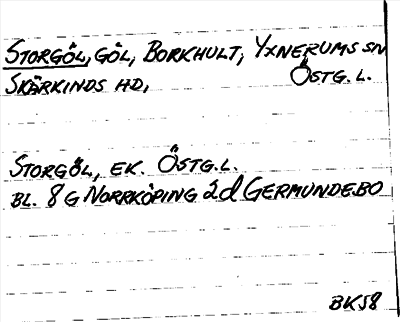 STORGÖL, GÖL, BORKHULT, YXNERUMS SN
SKÄRKINDS HD, ÖSTG. L.
STORGÖL, EK. ÖSTG. L.
BL. 8 G NORRKÖPING 2d GERMUNDEBO
BK58